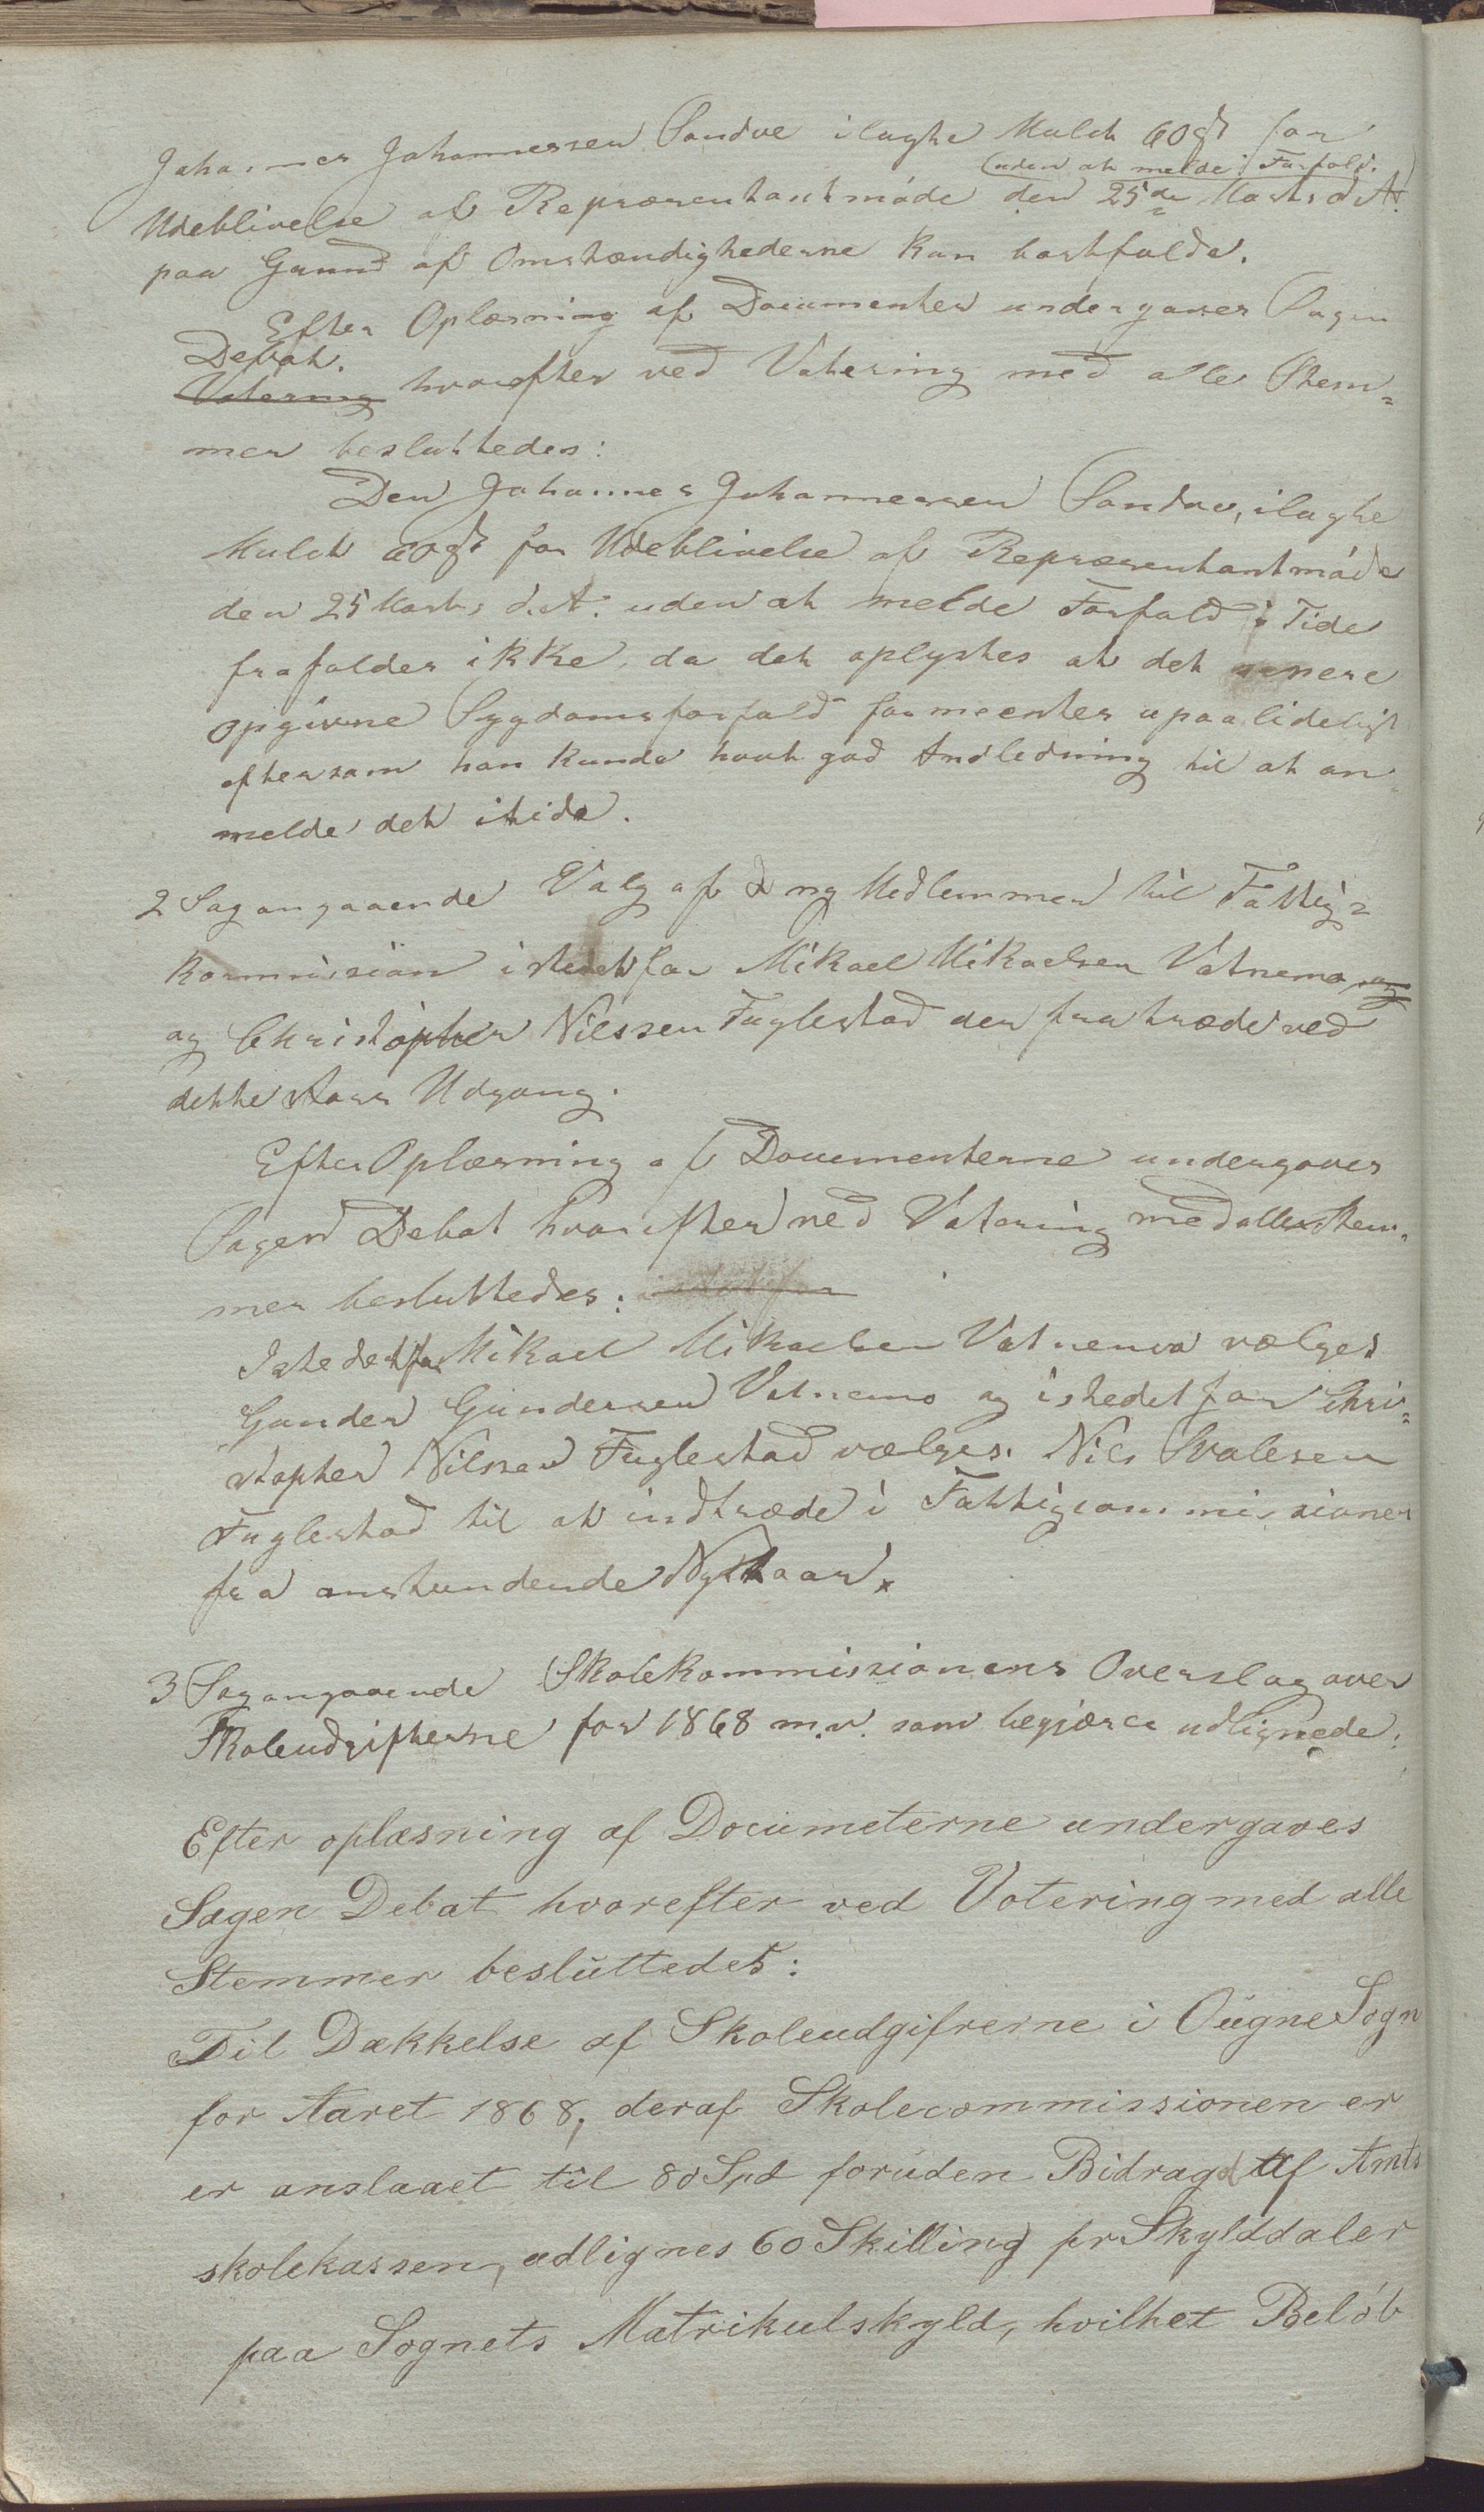 Johannes Johannessen Sandve ilagte Mulct 60 s for
(uden at melde Forfald.)
Udeblivelse af Repræsentantmøde den 25de Marts d. A.
paa Grund af Omstændighederne kan bortfalde.
Efter Oplæsning af Documenter undergaves Sagen
Debat.
Votering hvorefter ved Votering med alle Stem-
mer besluttedes:
Den Johannes Johannessen Sandve, ilagte
Mulct 60 s for Udeblivelse af Repræsentantmøde
den 25 Marts d. A. uden at melde Forfald i Tide
frafaldes ikke, da det oplystes at det senere
opgivne Sygdomsforfald formeentes upaalideligt
eftersom han kunde havt god Andledning til at an-
melde det itide.
2 Sag angaaende Valg af 2 ny Medlemmer til Fattig-
kommission istedetfor Mikael Mikaelsen Vatnemo og
og Christopher Nilssen Fuglestad der fratræde ved
dette Aars Udgang.
Efter Oplæsning af Documenterne undergaves
Sagen Debat hvorefter ved Votering med alle Stem-
mer besluttedes: istedetfor
Istedetfor Mikael Mikaelsen Vatnemo vælges
Gunder Gundersen Vatnemo og istedetfor Chri-
stopher Nilssen Fuglestad vælges Nils Svalesen
Fuglestad til at indtræde i Fattigcommissionen
fra anstundende Nyttaar.
3 Sag angaaende Skolekommissionens Overslag over
Skoleudgifterne for 1868 m.v. som begjæres udlignede.
Efter oplæsning af Documeterne undergaves
Sagen Debat hvorefter ved Votering med alle
Stemmer besluttedes:
Til Dækkelse af Skoleudgifrerne i Ougne Sogn
for Aaret 1868, deraf Skolecommissionen er
er anslaaet til 80 Spd foruden Bidrag af Amts
skolekassen, udlignes 60 Skilling pr Skylddaler
paa Sognets Matrikulskyld, hvilket Beløb